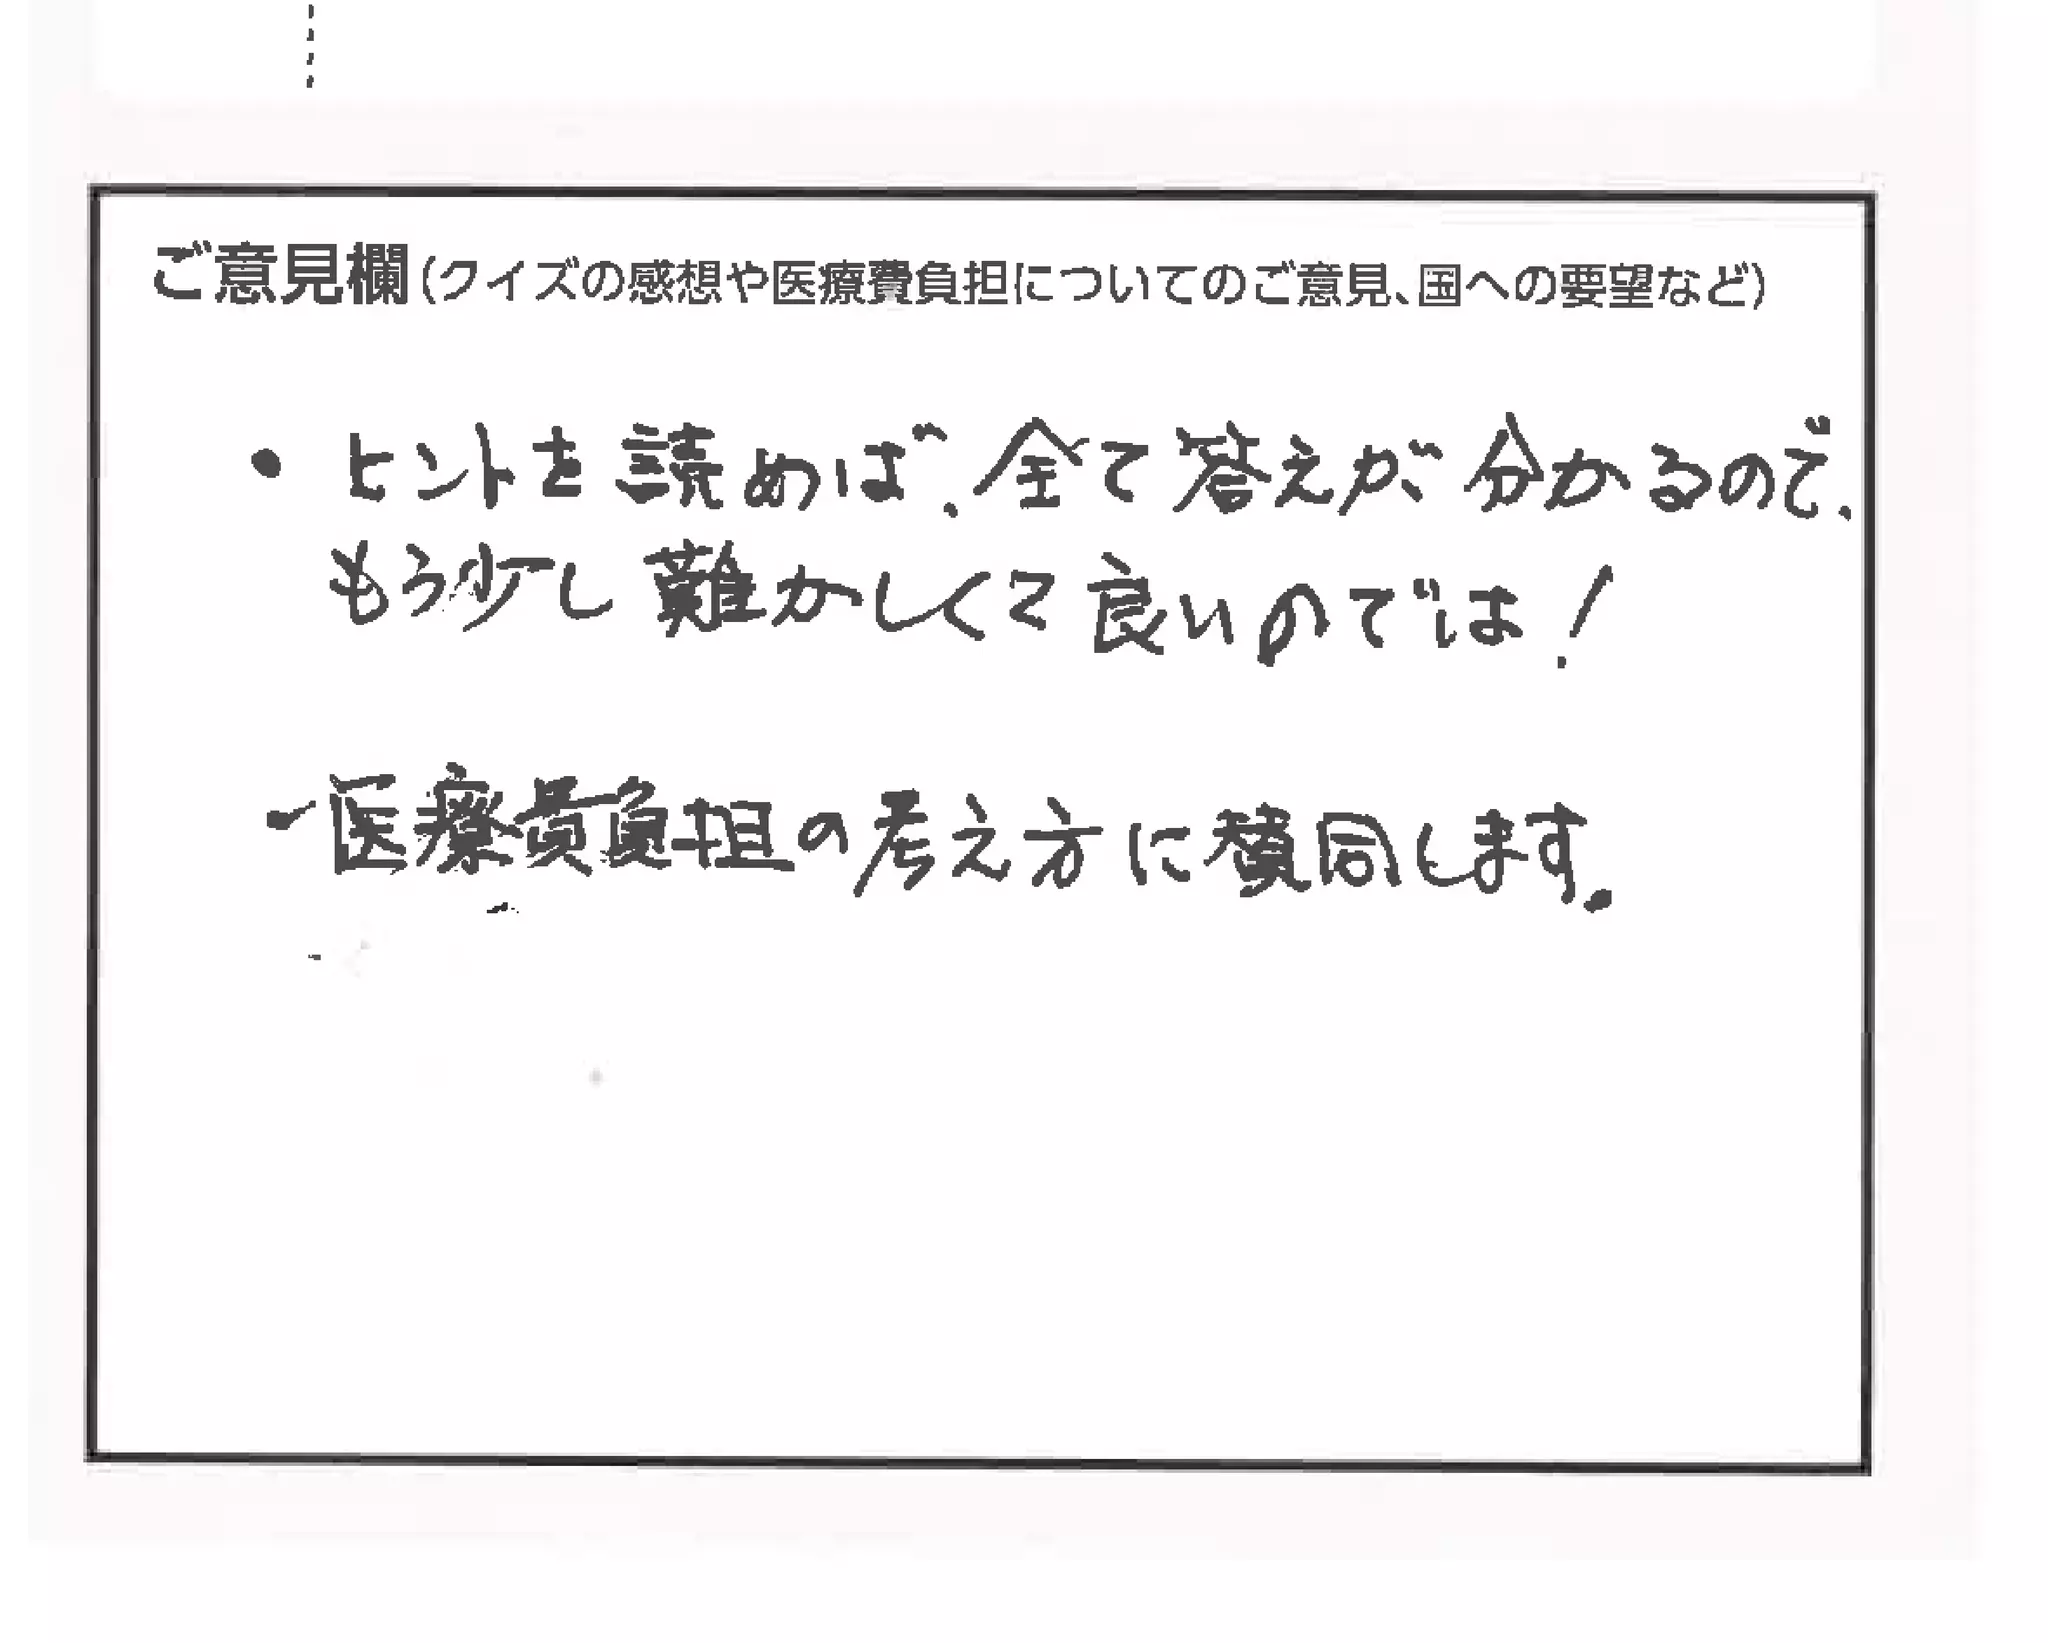 ご意見欄(クイズの感想や医療費負担についてのご意見、国への要望など)
・ヒントを読めば、全て答えが分かるので、
もう少し難かしくて良いのでは!
・医療費負担の考え方に賛同します。